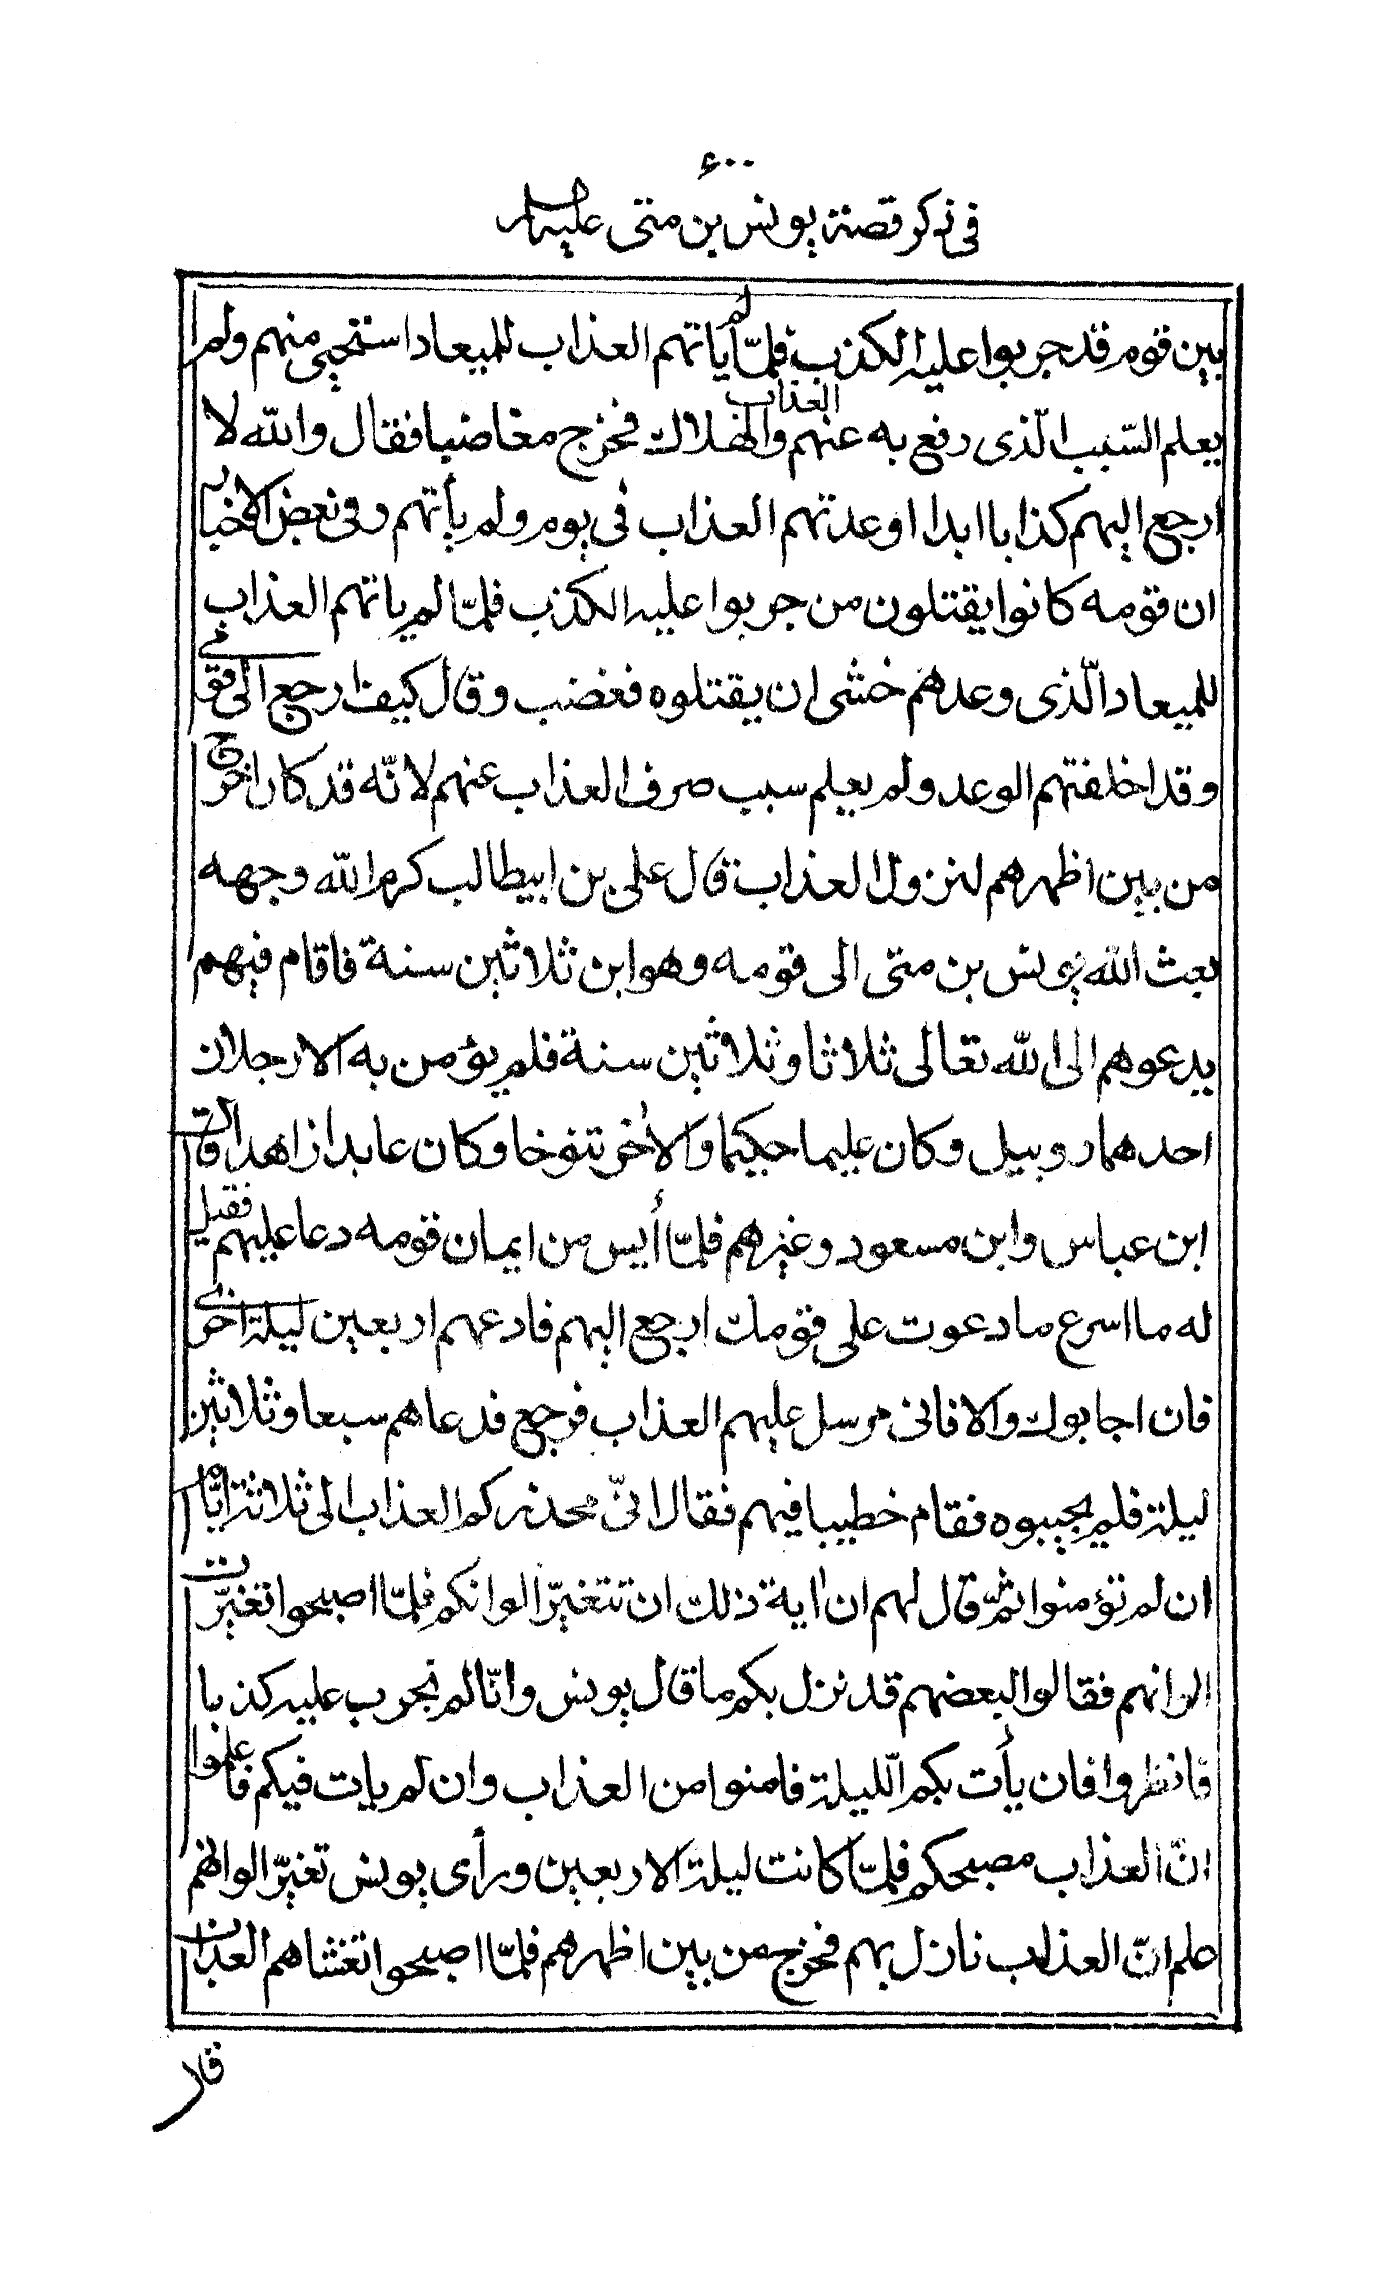 ٤٠٠
فى ذكر قصة يونس بن متى عليه السلام
بين قوم قد جربوا عليه الكذب فلمّا لم ياتهم العذاب للميعاد استحيى منهم ولم
يعلم السّبب الّذى رفع به عنهم العذاب والهلاك فخرج مغاضبا فقال والله لا
ارجع اليهم كذابا ابدا اوعدتهم العذاب فى يوم ولم يأتهم وفى بعض الاخبار
ان قومه كانوا يقتلون من جربوا عليه الكذب فلمّا لم ياتهم العذاب
للميعاد الّذى وعدهم خشى ان يقتلوه فغضب وقال كيف ارجع الى قومى
وقد اخلفتهم الوعد ولم يعلم سبب صرف العذاب عنهم لانّه قد كان اخرج
من بين اظهرهم لنزول العذاب قال على بن ابيطالب كرم الله وجهه
بعث الله يونس بن متى الى قومه وهو ابن ثلاثين سنة فاقام فيهم
يدعوهم الى الله تعالى ثلاثا وثلاثين سنة فلم يؤمن به الا رجلان
احدهما روبيل وكان عليما حكيما والاخر تنوخا وكان عابدا زاهدا قالت
ابن عباس وابن مسعود وغيرهم فلمّا أيس من ايمان قومه دعا عليهم فقيل
له ما اسرع ما دعوت على قومك ارجع اليهم فادعهم اربعين ليلة اخرى
فان اجابوك والا فانى مرسل عليهم العذاب فرجع فدعاهم سبعا وثلاثين
ليلة فلم يجيبوه فقام خطيبا فيهم فقال انىّ محذركم العذاب الى ثلاثة ايّام
ان لم تؤمنوا ثمّ قال لهم ان اية ذلك ان تتغيرّ الوانكم فلمّا اصبحوا تغيرّت
الوانهم فقالوا لبعضهم قد نزل بكم ما قال يونس وانّا لم نجرب عليه كذبا
فانظروا فان يأت بكم الّليلة فامنوا من العذاب وان لم يات فيكم فاعلموا
انّ العذاب مصبحكم فلمّا كانت ليلة الاربعين ورأى يونس تغيرّ الوانهم
علم انّ العذاب نازل بهم فخرج من بين اظهرهم فلمّا اصبحوا تغشاهم العذاب
قال